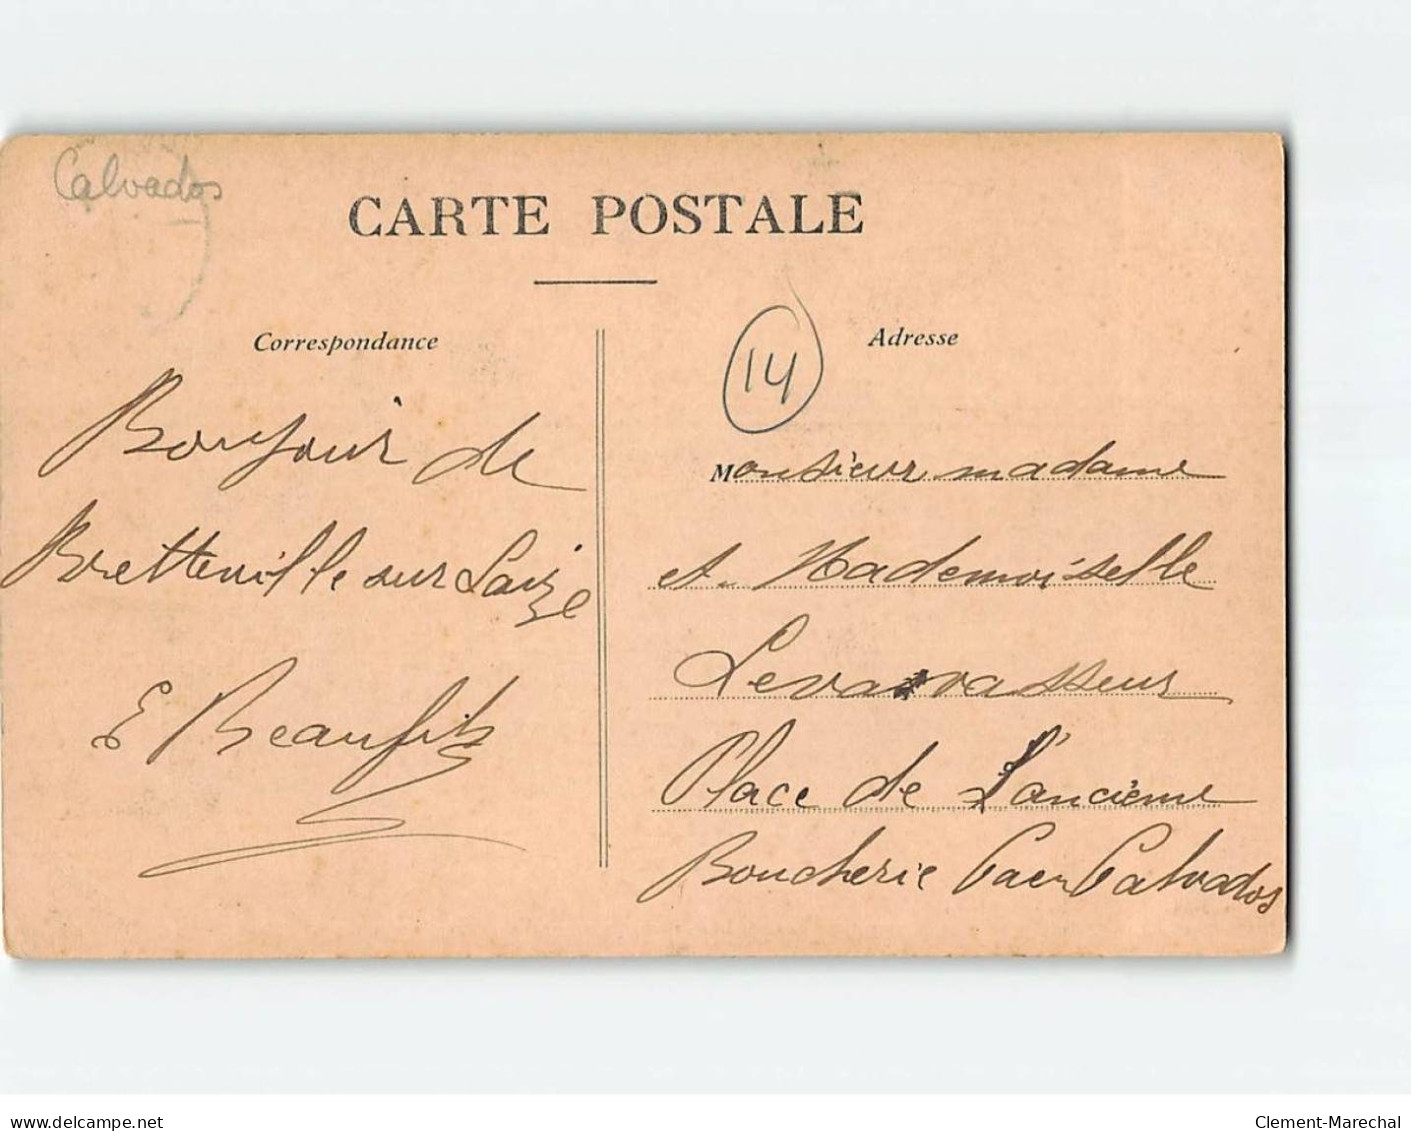 Calvados
CARTE POSTALE
Correspondance
Adresse
14
Bonjour de
Bretteville sur Laize
E Beaufils
Monsieur madame
et Mademoiselle
Levavasseur
Place de l'ancienne
Boucherie Caen Calvados
www.delcampe.net
Clement-Marechal